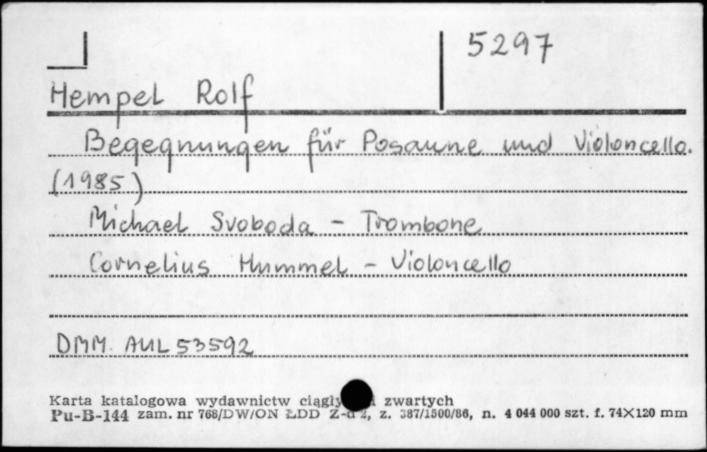 5297
Hempel Rolf
Begegnungen für Posaune und Violoncello.
(1985)
Michael Svoboda - Trombone
Cornelius Hummel - Violoncello
DMM. AUL 53592
Karta katalogowa wydawnictw zwartych
Pu-B-144 zam. nr 768/DW/ON ŁDD z. 387/1500/86, n. 4 044 000 szt. f. 74×120 mm